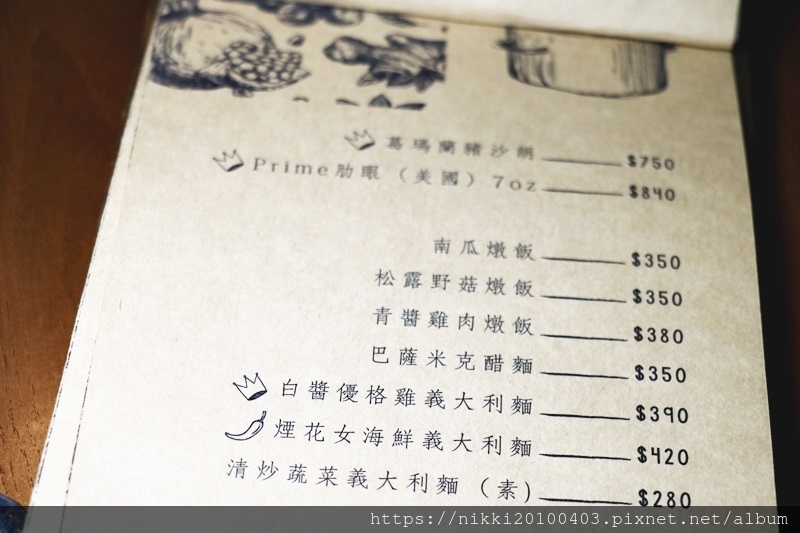 葛瑪蘭豬沙朗 $750
Prime肋眼（美國）7oz $840
南瓜燉飯 $350
松露野菇燉飯 $350
青醬雞肉燉飯 $380
巴薩米克醋麵 $350
白醬優格雞義大利麵 $390
煙花女海鮮義大利麵 $420
清炒蔬菜義大利麵（素） $280
https://nikki20100403.pixnet.net/album